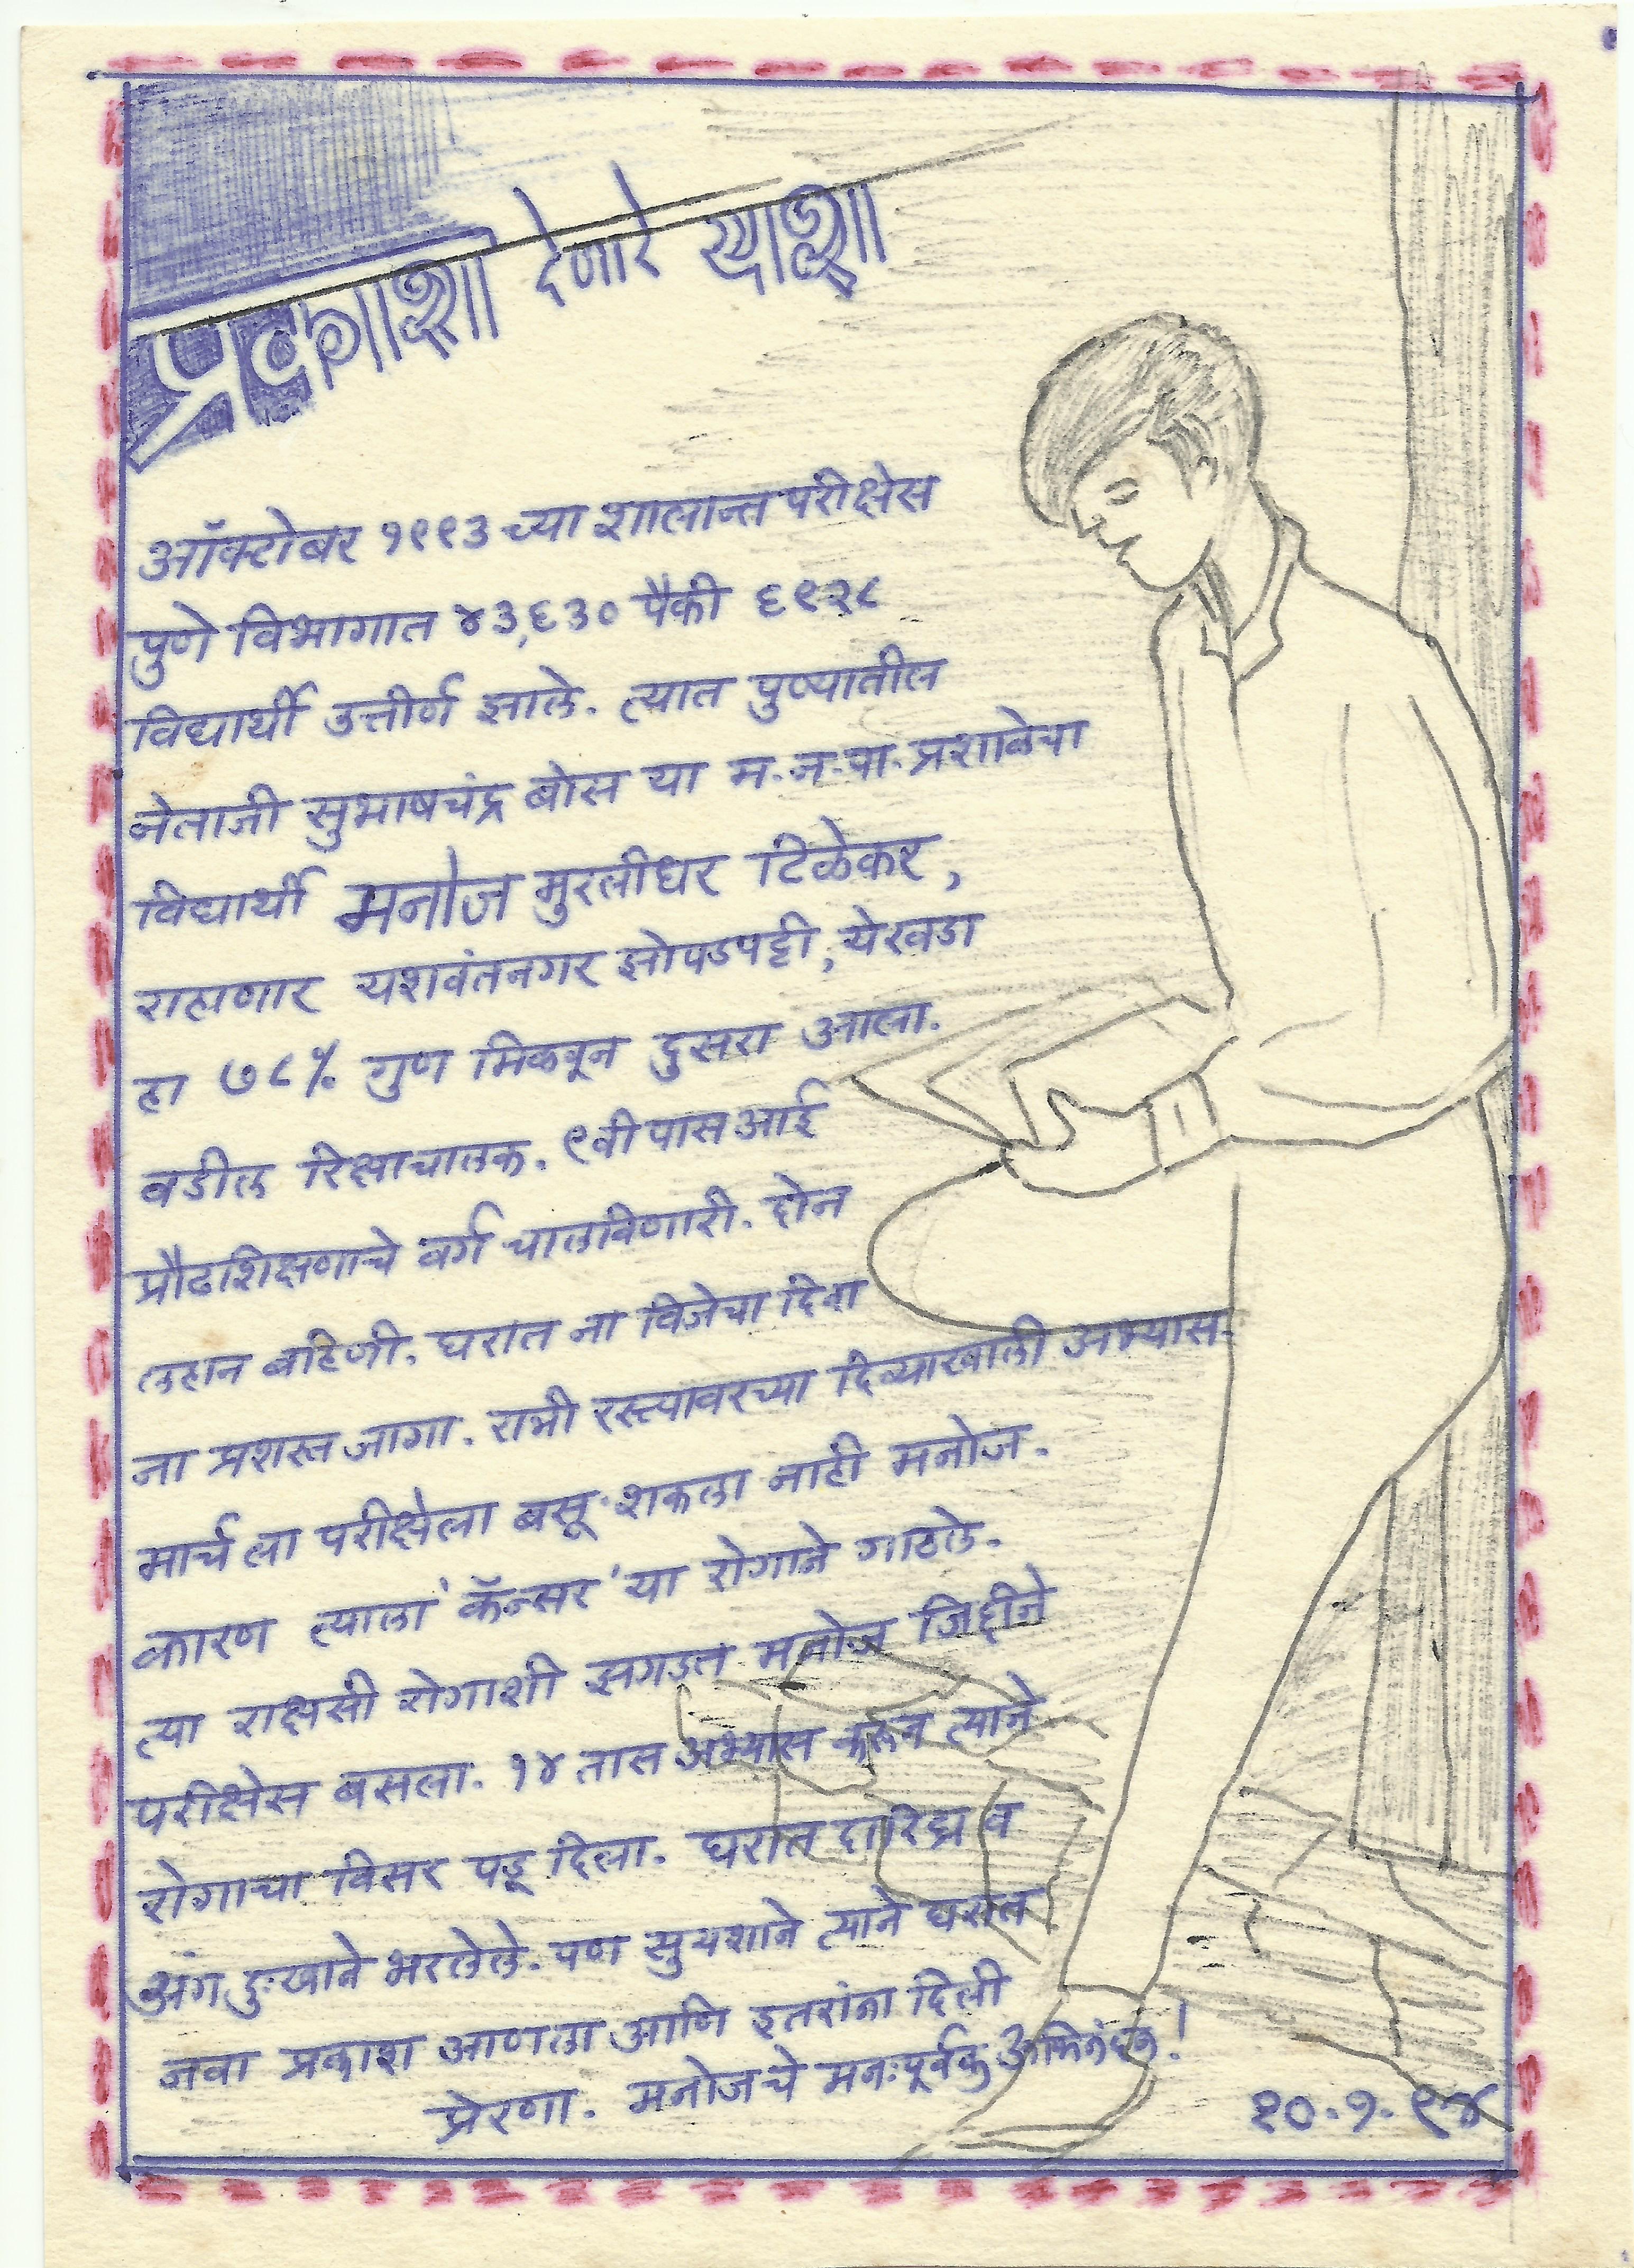 प्रकाश देणारे
ऑक्टोबर १९९३ च्या शालान्त परीक्षेस
पुणे विभागात ४३,६३० पैकी ६९२८
विद्यार्थी उत्तीर्ण झाले. त्यात पुण्यातील
नेताजी सुभाषचंद्र बोस या म.न.पा. प्रशालेचा
विद्यार्थी मनोज मुरलीधर टिळेकर,
राहाणार यशवंतनगर झोपडपट्टी, येरवडा
हा ७८% गुण मिळवून दुसरा आला.
वडील रिक्षाचालक. ९वी पास आई
प्रौढशिक्षणाचे वर्ग चालविणारी. दोन
लहान बहिणी. घरात ना विजेचा दिवा
ना प्रशस्त जागा. रात्री रस्त्यावरच्या दिव्याखाली अभ्यास.
मार्च ला परीक्षेला बसू शकला नाही मनोज.
कारण त्याला 'कॅन्सर' या रोगाने गाठले.
त्या राक्षसी रोगाशी झगडत मनोज जिद्दीने
परीक्षेस बसला. १४ तास अभ्यास करून त्याने
रोगाचा विसर पडू दिला. घरात दारिद्र्य व
अंग दुःखाने भरलेले. पण सुयशाने त्याने घरात
नवा प्रकाश आणला आणि इतरांना दिली
प्रेरणा. मनोजचे मनःपूर्वक अभिनंदन!
२०.१.९४